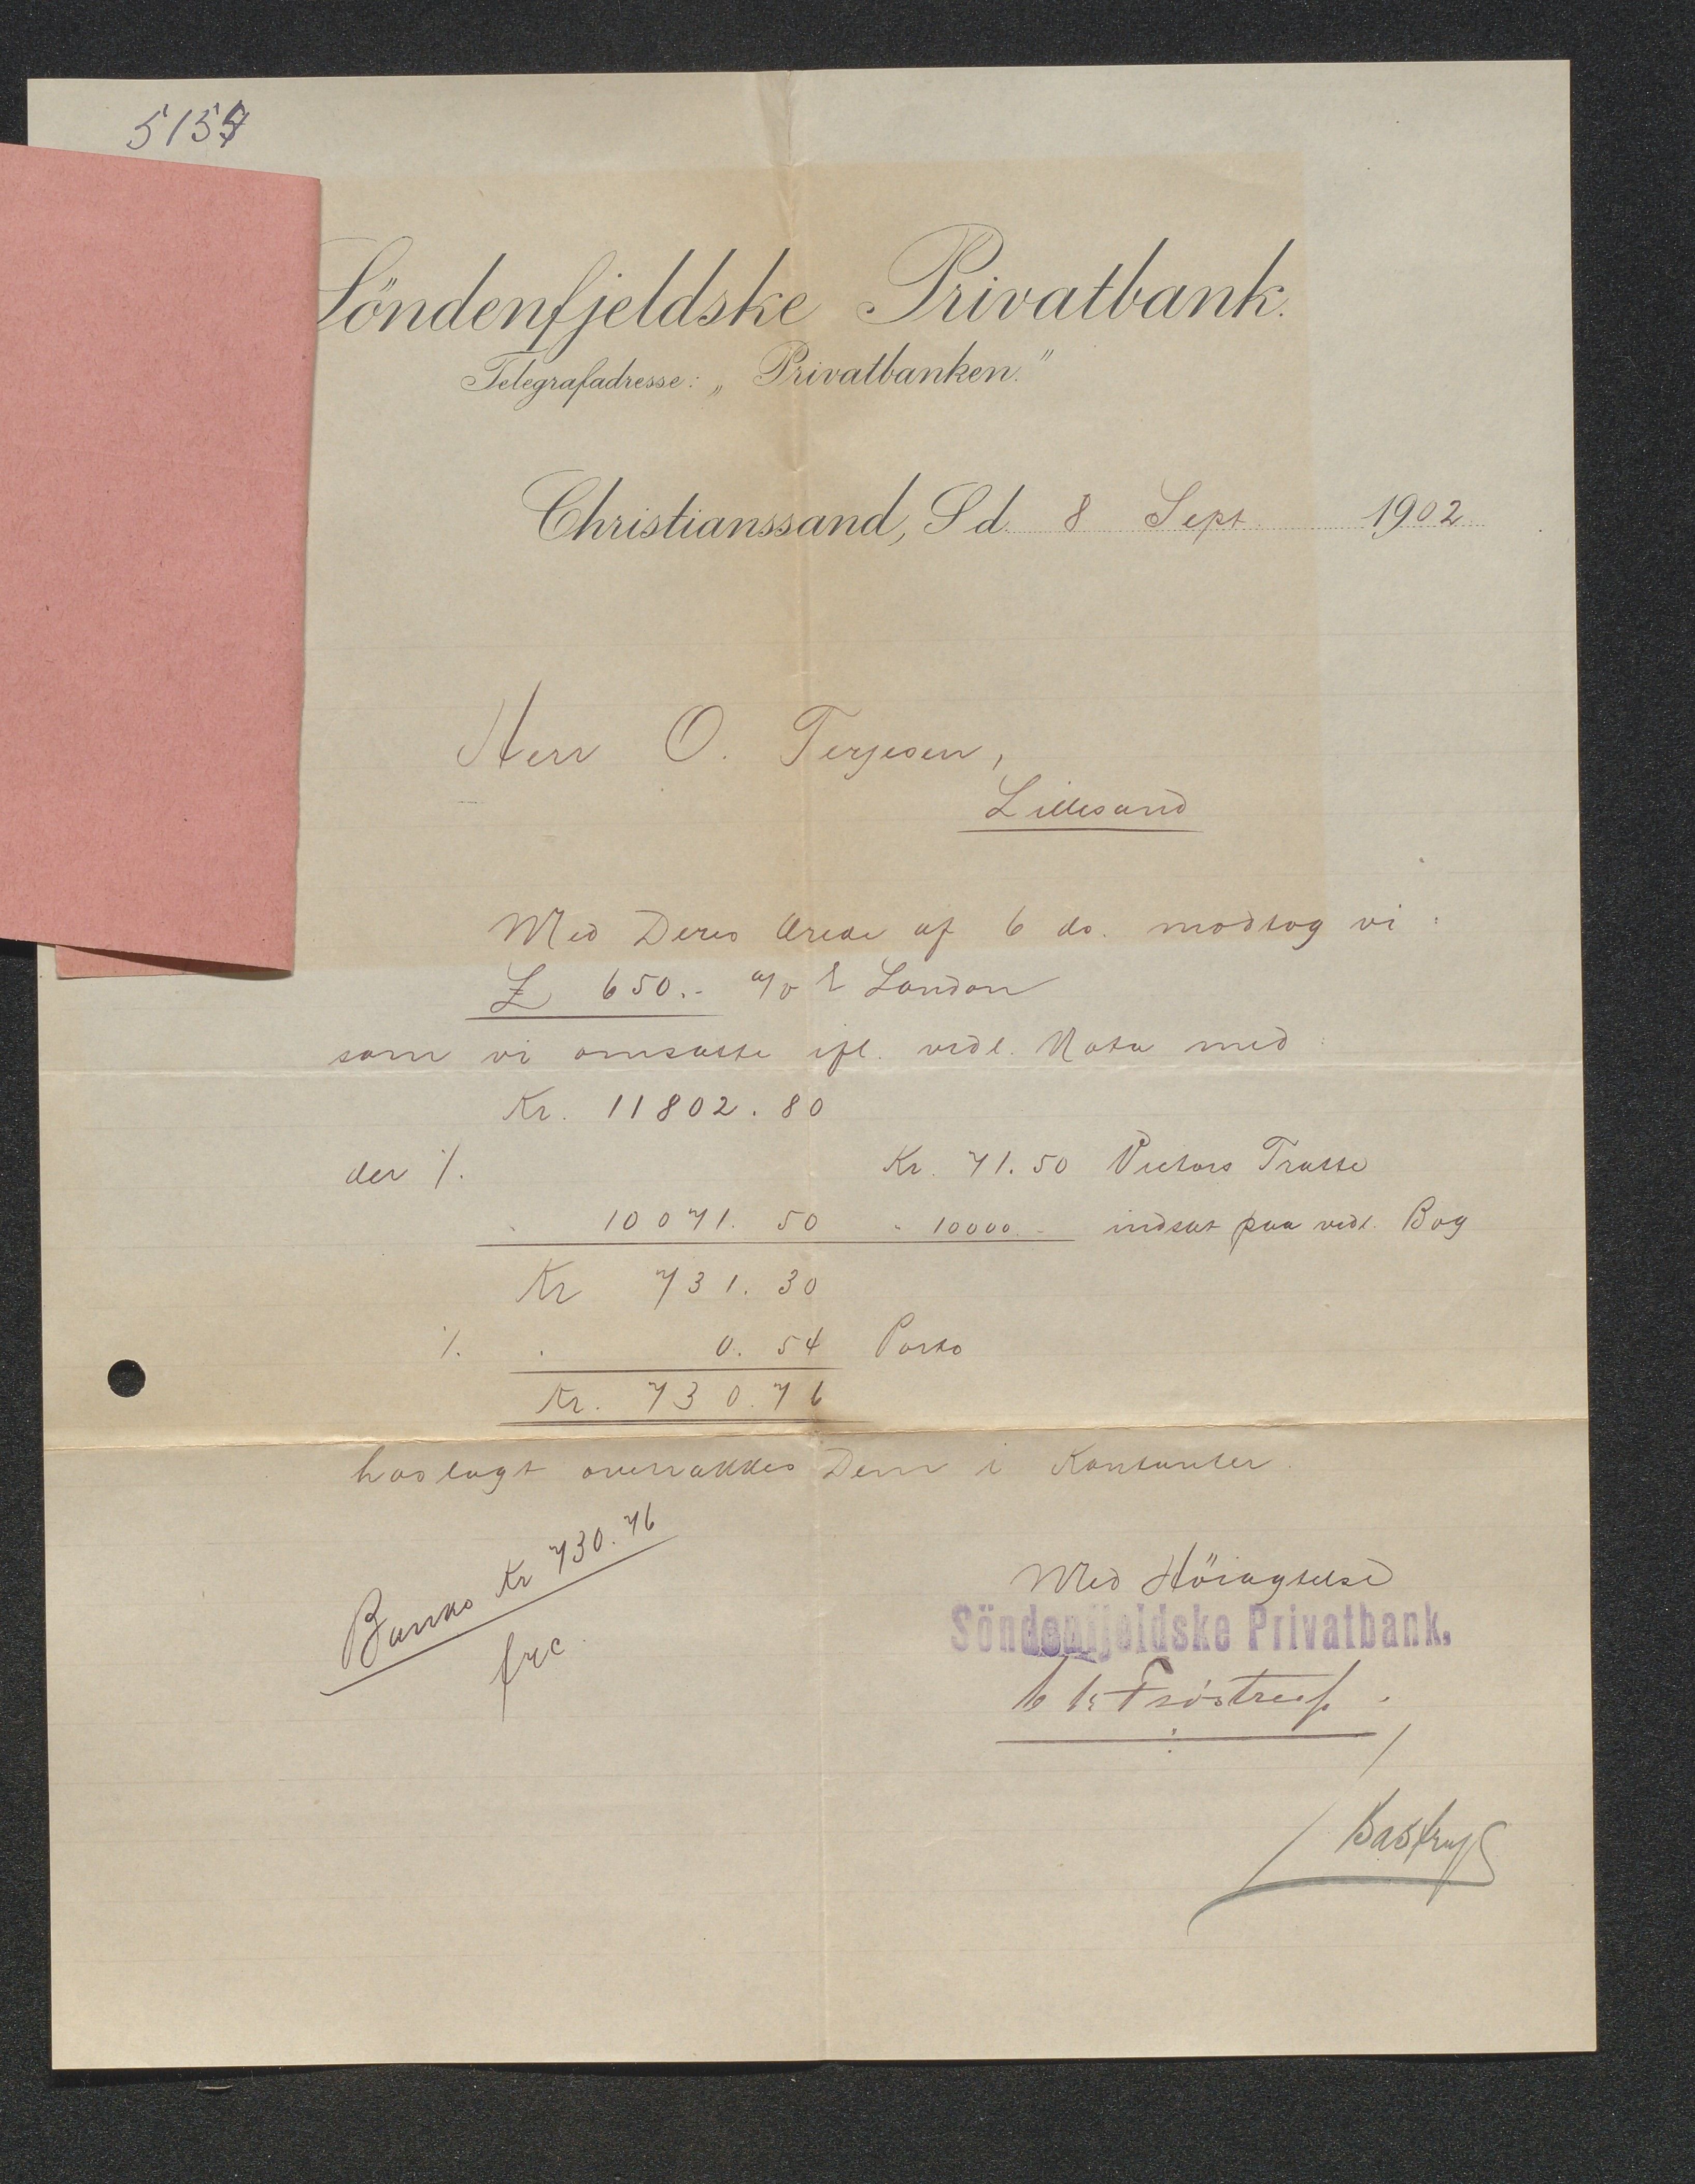 5157
Söndenfjeldske Privatbank.
Telegrafadresse: „Privatbanken."
Christianssand, S d. 8 Sept. 1902
Herr O. Terjesen,
Lillesand
Med Deres Ærede af 6 ds. modtog vi:
£ 650.- a/v London
som vi omsatte ifl. vedl. Nota med
Kr. 11802.80
der ./. Kr. 71.50 Victors Tratte
" 10071.50 " 10000.- indsat paa vedl. Bog
Kr 731.30
./. " 0.54 Porto
Kr. 730.76
hoslagt overrækkes Dem i Kontanter.
Banko Kr 730.76
Med Höiagtelse
Söndenfjeldske Privatbank.
Tröstrup.
Bastrup